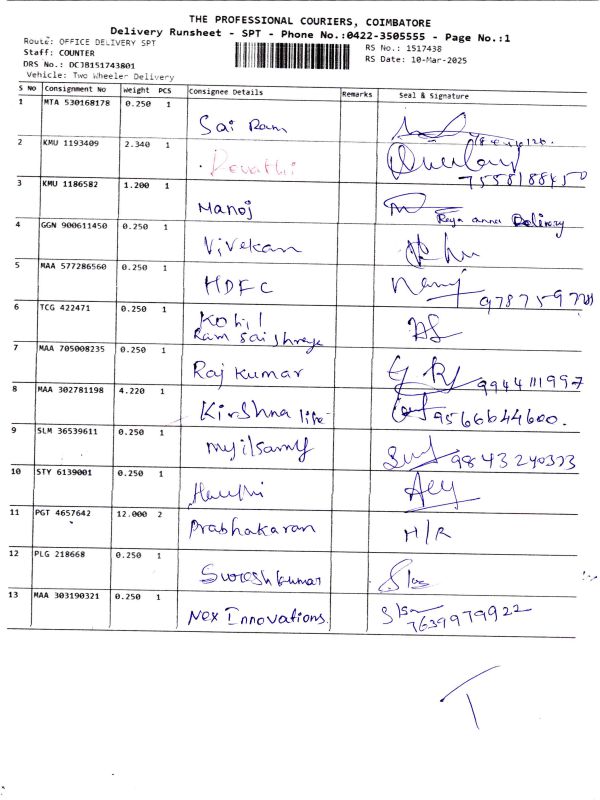 THE PROFESSIONAL COURIERS, COIMBATORE
Delivery Runsheet - SPT - Phone No.:0422-3505555 - Page No.:1
Route: OFFICE DELIVERY SPT
RS No.: 1517438
Staff: COUNTER
RS Date: 10-Mar-2025
DRS No.: DCJB151743801
Vehicle: Two Wheeler Delivery
S No Consignment No Weight PCS Consignee Details Remarks Seal & Signature
1 MTA 530168178 0.250 1
Sai Ram
2 KMU 1193409 2.340 1
Revathi
7558188450
3 KMU 1186582 1.200 1
Manoj
Delivery
4 GGN 900611450 0.250 1
Vivekan
5 MAA 577286560 0.250 1
HDFC
6 TCG 422471 0.250 1
Ram Sai
7 MAA 705008235 0.250 1
Raj kumar 9944111997
8 MAA 302781198 4.220 1
Kirshna life 9566644600.
9 SLM 36539611 0.250 1
9843240373
10 STY 6139001 0.250 1
11 PGT 4657642 12.000 2
Prabhakaran H/R
12 PLG 218668 0.250 1
Sureshkumar
13 MAA 303190321 0.250 1
Nex Innovations.
7639979922